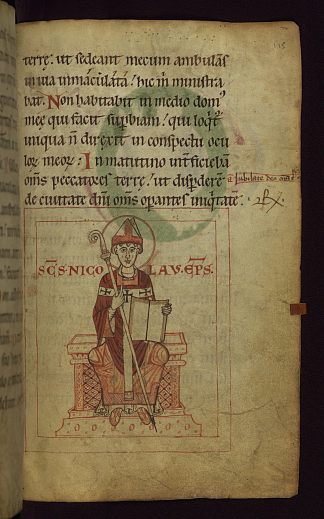 terrę: ut sedeant mecum ambulās
in uia inmaculata / hic m̄ ministra
bat. Non habitabit in medio dom̄
meę qui facit supbiam / qui loq̄t
iniqua ñ direxit in conspectu ocu
loꝝ meoꝝ: In matutino int̄ficiebā
om̄s peccatores terrę / ut disp̄derē
de ciuitate dn̄i om̄s opantes iniq̄tatē.
a Iubilate deo
SC̄S NICOLAVS EP̄S